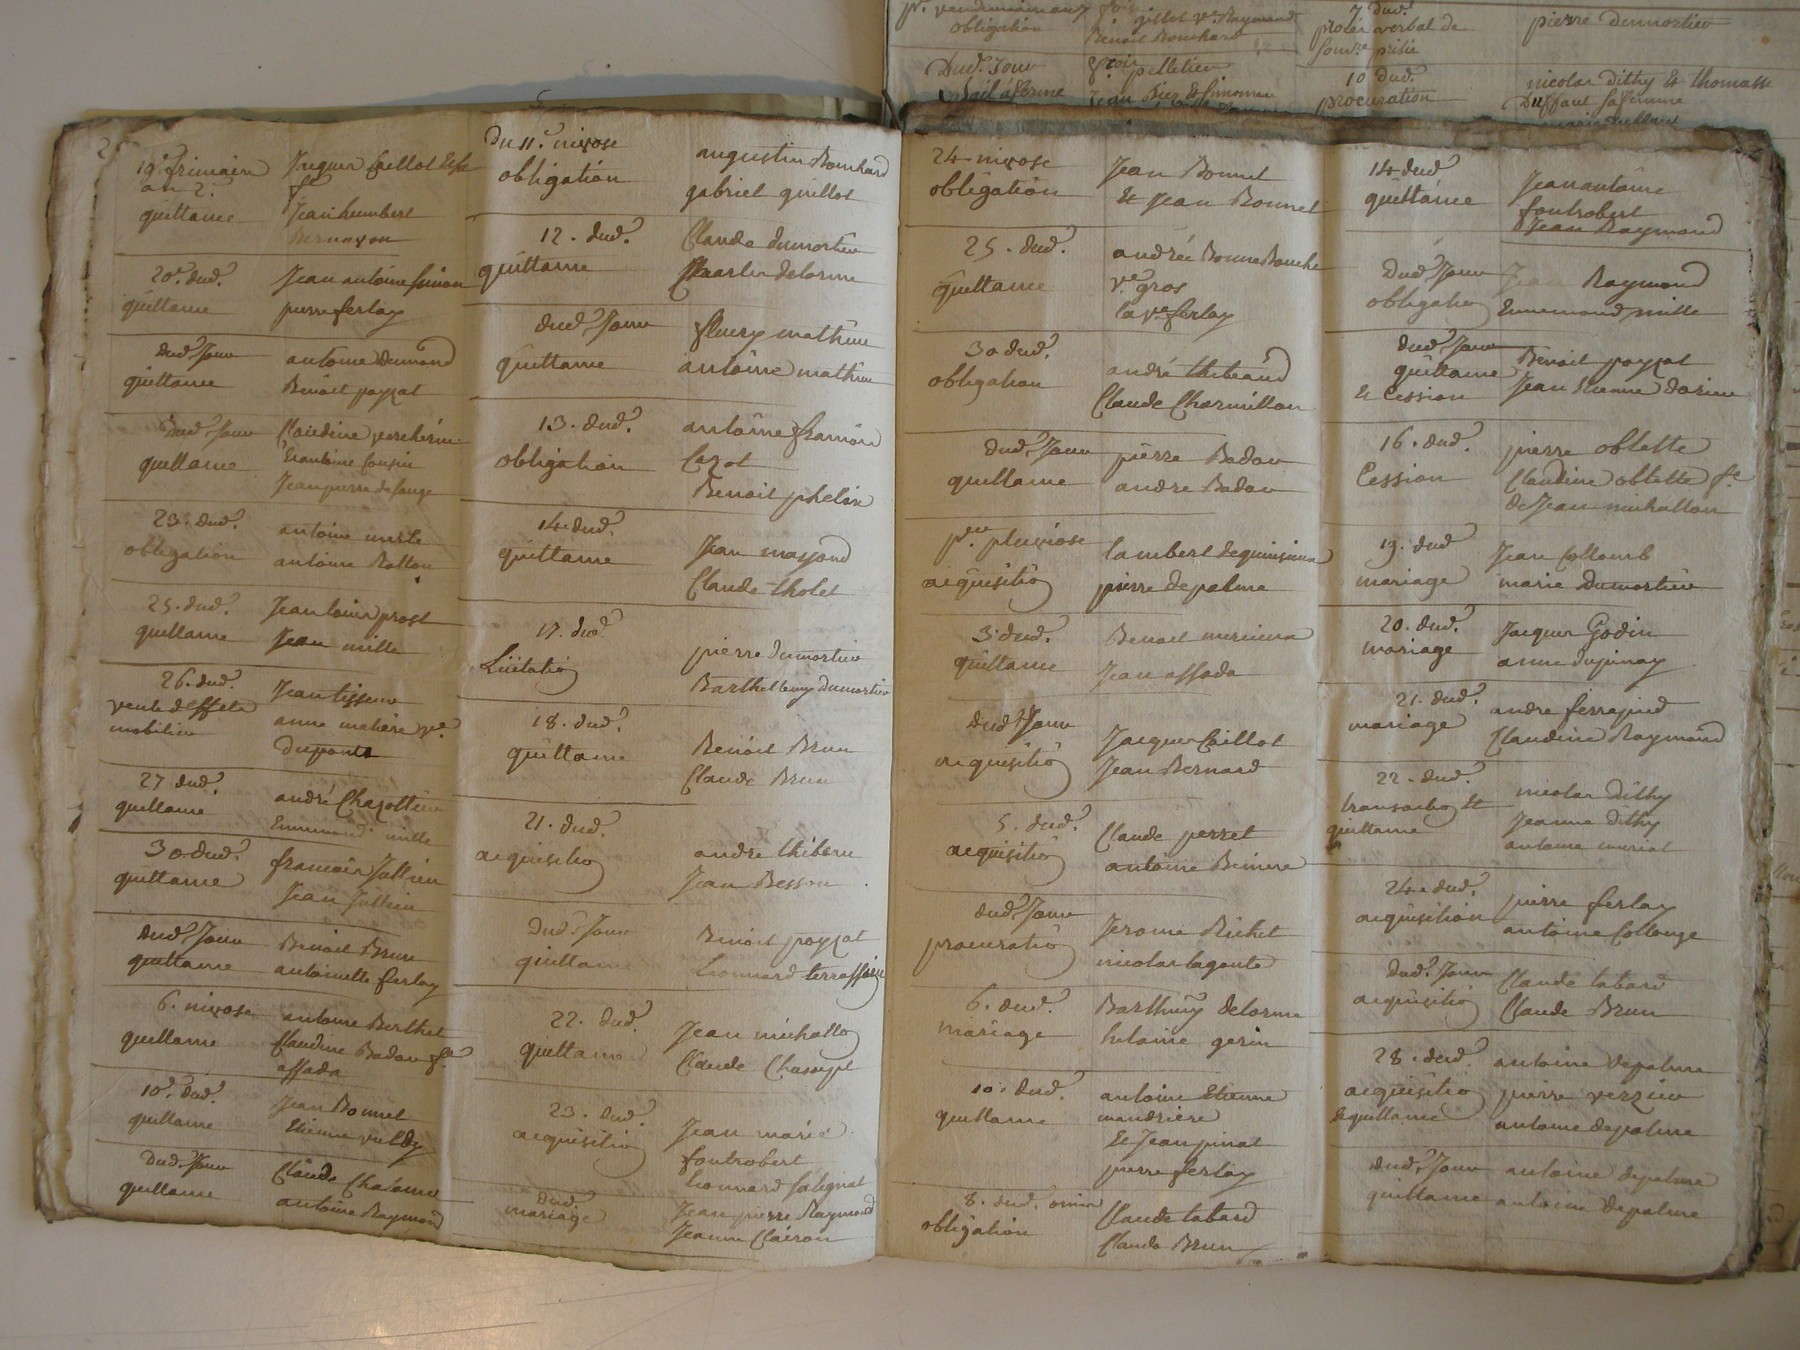 pr. vendemiaire
obligation
gillet ve. Raymond
Benoit Bouchard
7 dud.
procès verbal de
pierre dumortier
Dud. Jour
pelletier
10 dud.
procuration
nicolas dithy & thomasse
2
19e. frimaire
an 2.
quittance
Jean humbert
20e. dud.
quittance
Jean antoine simon
pierre ferlay
dud. Jour
quittance
antoine dumond
Benoit payzat
dud. Jour
quittance
Claudine
Jean pierre
23. dud.
obligation
antoine
antoine Rallon
25. dud.
quittance
Jean louis prost
Jean mille
26. dud.
vente deffets
mobilier
Jean tisseur
anne
Duponts
27 dud.
quittance
andré Chazottier
Ennemond mille
30 dud.
quittance
francois Jullien
Jean Jullien
dud. Jour
quittance
Benoit Brun
antoinette ferlay
6. nivose
quittance
antoine Berthet
Claudine Badau fe.
assada
10e. dud.
quittance
Jean Bonnet
Etienne
Dud. Jour
quittance
Claude
antoine Raymond
Du 11e. nivose
obligation
augustin Bouchard
gabriel guillot
12. dud.
quittance
Claude dumortier
Charles delorme
dud. Jour
quittance
fleury mathieu
antoine mathieu
13. dud.
obligation
antoine francois
Cazot
Benoit phelix
14. dud.
quittance
Jean massond
Claude tholet
17. dud.
Licitatio
pierre dumortier
Barthellemy dumortier
18. dud.
quittance
Benoit Brun
Claude Brun
21. dud.
acquisitio
andre
Jean Besson
dud. Jour
quittance
Benoit payzat
Leonnard
22. dud.
quittance
Jean michallo
Claude
23. dud.
acquisitio
Jean marie
foutrobert
Leonnard Salignat
dud.
mariage
Jean pierre Raymond
Jeanne Clairon
24 nivose
obligation
Jean Bonnet
& Jean Bonnet
25. dud.
quittance
andrée Bonne Bouche
ve. gros
la ve. ferlay
30 dud.
obligation
andré thibeaud
Claude Charmillon
dud. Jour
quittance
pierre Badau
andre Badau
per. pluviose
acquisitio
lambert
pierre depalme
3. dud.
quittance
Benoit
Jean assada
dud. Jour
acquisitio
Jacques Caillot
Jean Bernard
5. dud.
acquisitio
Claude perret
antoine
dud. Jour
procuratio
Jerome Richet
nicolas lagoute
6. dud.
mariage
Barthmy delorme
helaine gerin
10. dud.
quittance
antoine Etienne
mandriere
& Jean pinat
pierre ferlay
8. dud. omis
obligation
Claude tabard
Claude Brun
14 dud
quittance
Jean antoine
foutrobert
Jean Raymond
dud. Jour
obligatio
Jean Raymond
Ennemond mille
dud. Jour
quittance
& Cession
Benoit payzat
Jean Etienne
16. dud.
Cession
pierre oblette
Claudine oblette fe.
de Jean michallon
19. dud
mariage
Jean Collomb
marie dumortier
20. dud.
mariage
Jacques Godin
anne dupinay
21. dud.
mariage
andre
Claudine Raymond
22. dud.
transactio &
quittance
nicolas dithy
Jeanne dithy
antoine
24. dud.
acquisition
pierre ferlay
antoine Collonge
dud. Jour
acquisitio
Claude tabard
Claude Brun
28. dud.
acquisitio
& quittance
antoine depalme
pierre verzier
antoine depalme
dud. Jour
quittance
antoine depalme
antoine depalme